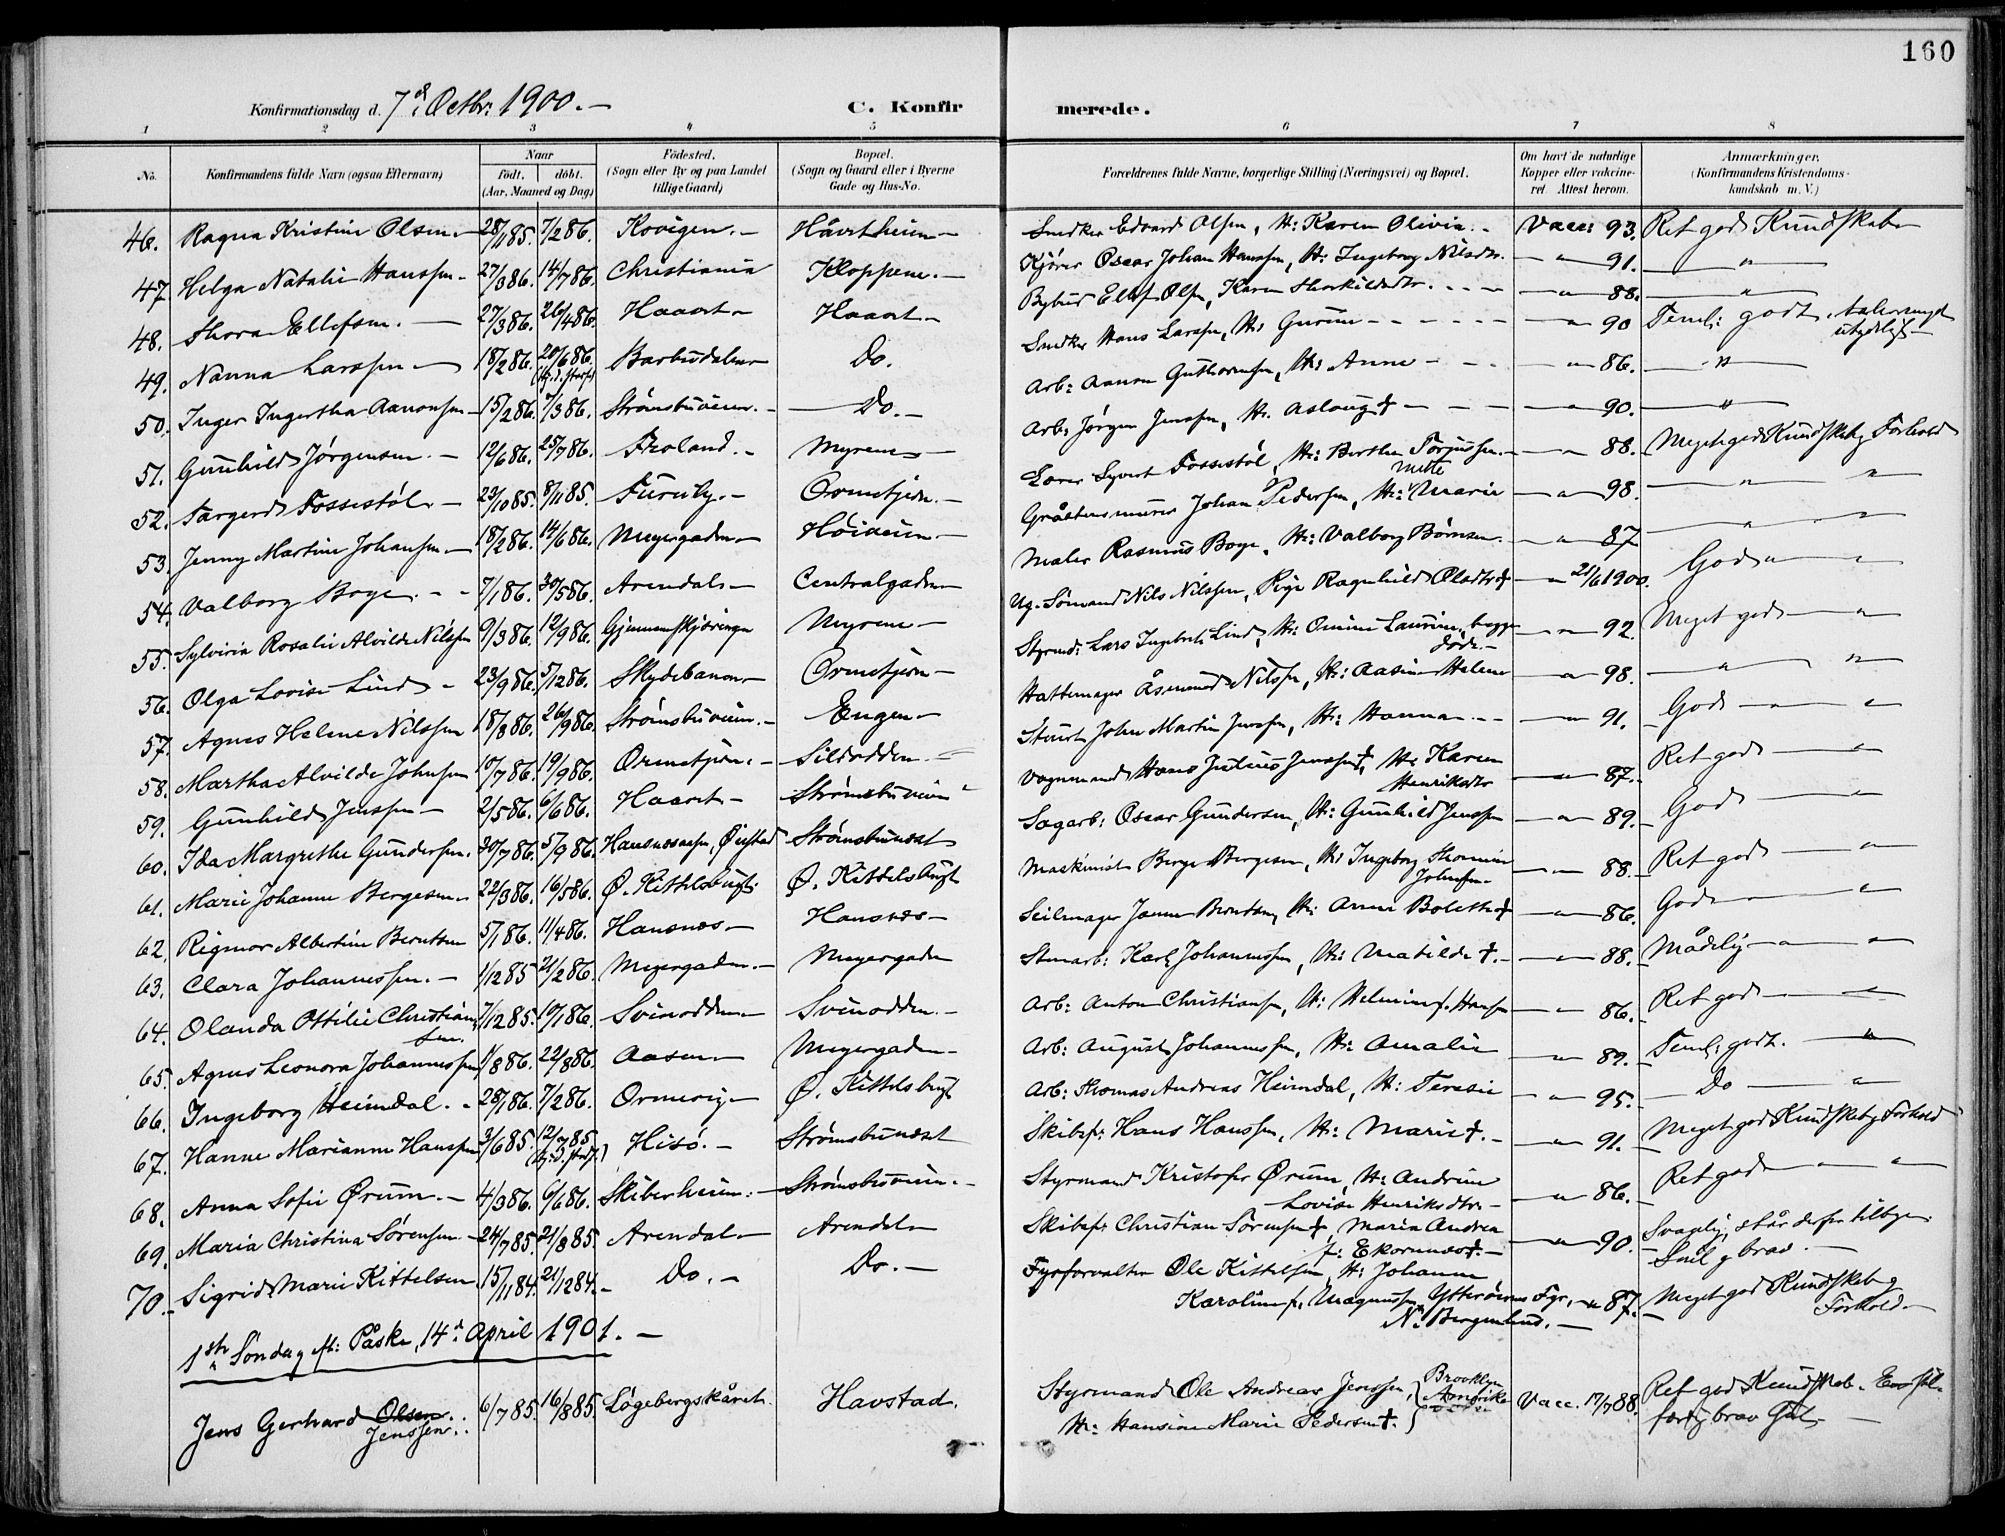 160
Konfirmationsdag d. 7de Octbr: 1900. —
C. Konfirmerede.
1 2 3 4 5 6 7 8
No. Konfirmandens fulde Navn (ogsaa Efternavn) Naar født. døbt. (Aar, Maaned og Dag) Fødested. (Sogn eller By og paa Landet tillige Gaard) Bopæl. (Sogn og Gaard eller i Byerne Gade og Hus-No. Forældrenes fulde Navne, borgerlige Stilling (Næringsvei) og Bopæl. Om havt de naturlige Kopper eller vaccineret. Attest herom. Anmærkninger. (Konfirmandens Kristendomskundskab m. V.)
46. Ragna Kristine Olsen 28/1185. 7/286. Kovigen. Håvtheim Snedker Edvard Olsen, H: Karen Olivia Vacc: 93. Ret god Kundskab
47. Helga Natalie Hanssen 27/386. 14/786. Christiania Kloppene. Kjører Oscar Johan Hanssen, H: Ingeborg Nilsdtr. — " — 91. — " —
48. Thora Ellefsen. 27/386. 26/486. Haavet Haavet Bybud Ellef Olsen, Karen Thorkildsdtr. — " — 88. — " —
49. Nanna Larssen 18/286. 20/686. Barbudalen Do. Snedker Hans Larssen, H: Gurine — " — 90 Teml: godt.
50. Inger Ingertha Aanonsen 15/286. 7/386. Strømsbuveien. Do. Arb: Aanon Guthormsen, H: Anne — " — 86. — " —
51. Gunhild Jørgensen 12/686. 25/786. Froland. Myrene Arb: Jørgen Jenssen, H: Aslaug † — " — 90. — " —
52. Targerd Fossestøl 23/1085. 8/1185. Furuly. Ormetjern. Lærer Syvert Fossestøl, H: Berthe Torjussen. — " — 88. Meget god Kundskab og Forhold
53. Jenny Martine Johansen 18/286. 14/686. Meyergaden Høiaeien Gråstensmurer Johan Pedersen, H: Mette Marie — " — 98. — " —
54. Valborg Boye 7/186. 30/586. Arendal Centralgaden Maler Rasmus Boye, H: Valborg Børnsen. — " — 87 — " —
55. Sylviria Rosalie Alvilde Nilssen 9/386. 12/986. Gjennemskjæringen Myrene Ug. Sømand Nils Nilssen, Pige Ragnhild Olsdtr † — " — 21/6 1900. God — " —
56. Olga Lovise Lind 23/986. 5/1286. Skydebanen Ormetjern Styrmd: Lars Ingebret Lind, H: Omine Laurine, begge døde. — " — 92. Meget god — " —
57. Agnes Helene Nilssen 18/886. 26/986. Strømsbuveien. Engen Hattemager Åsmund Nilssen, H: Aasine Helene — " — 98. — " —
58. Martha Alvilde Johnsen 10/786. 19/986. Ormetjern. Sildodden. Stuert John Martin Jenssen, H: Hanna — " — 91. God — " —
59. Gunhild Jenssen 2/586. 6/686. Haavet Strømsbuveien Vognmand Hans Julius Jenssen †, H: Karen Henriksdtr — " — 87. Ret god — " —
60. Ida Margrethe Gundersen. 30/786. 5/986. Hansnesaasen, Øiestad Strømsbunæset Sagarb: Oscar Gundersen, H: Gunhild Jenssen — " — 89. God — " —
61. Marie Johanne Bergesen 22/386. 16/586. Ø. Kittelsbugt. Ø. Kittelsbugt Maskinist Berge Bergesen, H: Ingeborg Thomine Johnsen — " — 88. Ret god — " —
62. Rigmor Albertine Berntsen 5/186. 11/486. Hansnæs Hansnæs Seilmager Janne Berntsen, H: Anne Bolette † — " — 86. God — " —
63. Clara Johannessen. 1/1285 21/286. Meyergaden. Meyergaden Stenarb: Karl Johannessen, H: Matilde †. — " — 88. Mådelig — " —
64. Olanda Ottilie Christiansen. 7/1285. 10/186. Svinodden Svinodden. Arb: Anton Christiansen, H: Helmine f. Hansen — " — 86. Ret god — " —
65. Agnes Leonora Johannessen 1/886. 22/886. Aasen Meyergaden Arb: August Johannessen, H: Amalie — " — 89. Teml: godt. — " —
66. Ingeborg Heimdal. 28/186. 7/286. Ormevig Ø. Kittelsbugt Arb: Thomas Andreas Heimdal, H: Teresie — " — 95. Do — " —
67. Hanne Marianne Hanssen 3/685. 12/785. Hisø. Strømsbunæset Skibsf: Hans Hanssen, H: Marie †. — " — 91. Meget god Kundskab og Forhold
68. Anna Sofie Ørum. 4/386. 6/686. Skiberheim. Strømsbuveien. Styrmand Kristofer Ørum, H: Andrine Lovise Henriksdtr. — " — 86. Ret god — " —
69. Maria Christina Sørensen. 24/785. 21/885. Arendal Arendal Skibsf: Christian Sørensen †, Maria Andrea f: Ekornæs †. — " — 90. Svagelig, står derfor tilbage. Snil og brav.
70. Sigrid Marie Kittelsen 15/1184. 21/1284. Do. Do. Fyrforvalter Ole Kittelsen, H: Johanne Karoline f. Magnussen, Ytterøerne Fyr, N. Bergenhus. — " — 87. Meget god Kundskab og Forhold.
1ste Søndag eft: Påske, 14de April 1901. —
Jens Gerhard Olsen. Jenssen. 6/785. 16/885. Løgebergskåret. Havstad. Styrmand Ole Andreas Jenssen, Brooklyn Amerika H: Hansine Marie Pedersen †. Vacc. 17/788. Ret god Kundskab. brav Gut.